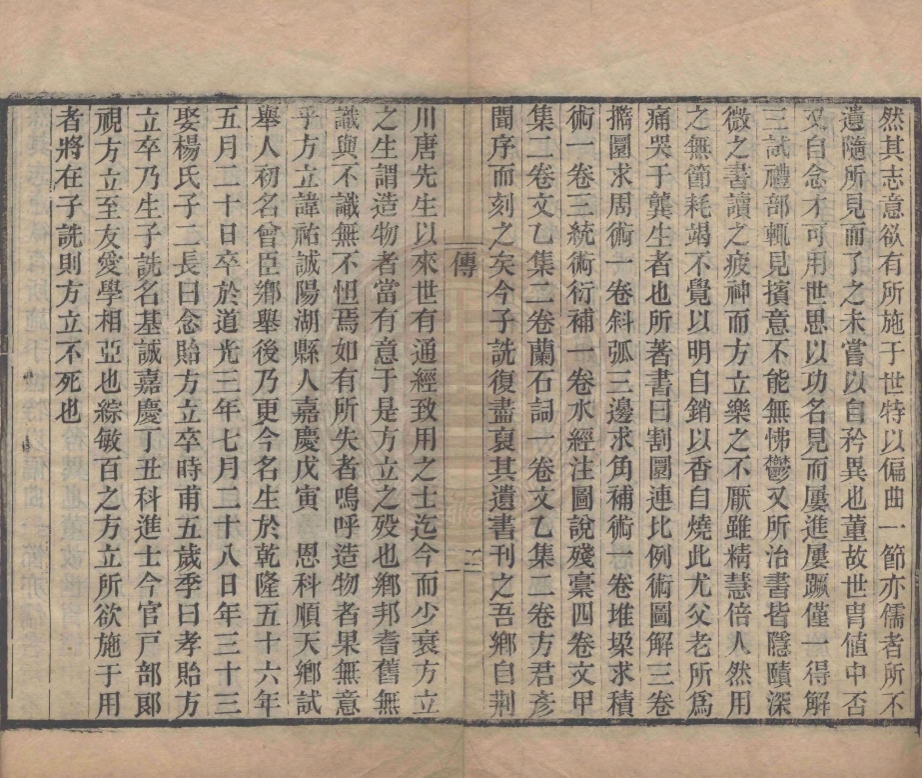 然其志意欲有所施于世特以偏曲一節亦儒者所不
遺隨所見而了之未嘗以自矜異也董故世胄値中否
又自念才可用世思以功名見而屢進屢蹶僅一得解
三試禮部輒見擯意不能無怫鬱又所治書皆隱賾深
微之書讀之疲神而方立樂之不厭雖精慧倍人然用
之無節耗竭不覺以明自銷以香自燒此尤父老所爲
痛哭于龔生者也所著書曰割圜連比例術圖解三卷
橢圜求周術一卷斜弧三邊求角補術一卷堆垜求積
術一卷三統術衍補一卷水經注圖說殘稾四卷文甲
集二卷文乙集二卷蘭石詞一卷文乙集二卷方君彥
聞序而刻之矣今子詵復盡裒其遺書刊之吾鄉自荆
傳
十二
川唐先生以來世有通經致用之士迄今而少衰方立
之生謂造物者當有意于是方立之歿也鄉邦耆舊無
識與不識無不怛焉如有所失者嗚呼造物者果無意
乎方立諱祐誠陽湖縣人嘉慶戊寅　恩科順天鄉試
舉人初名曾臣鄉舉後乃更今名生於乾隆五十六年
五月二十日卒於道光三年七月二十八日年三十三
娶楊氏子二長曰念貽方立卒時甫五歲季曰孝貽方
立卒乃生子詵名基誠嘉慶丁丑科進士今官戸部郞
視方立至友愛學相亞也綜敏百之方立所欲施于用
者將在子詵則方立不死也